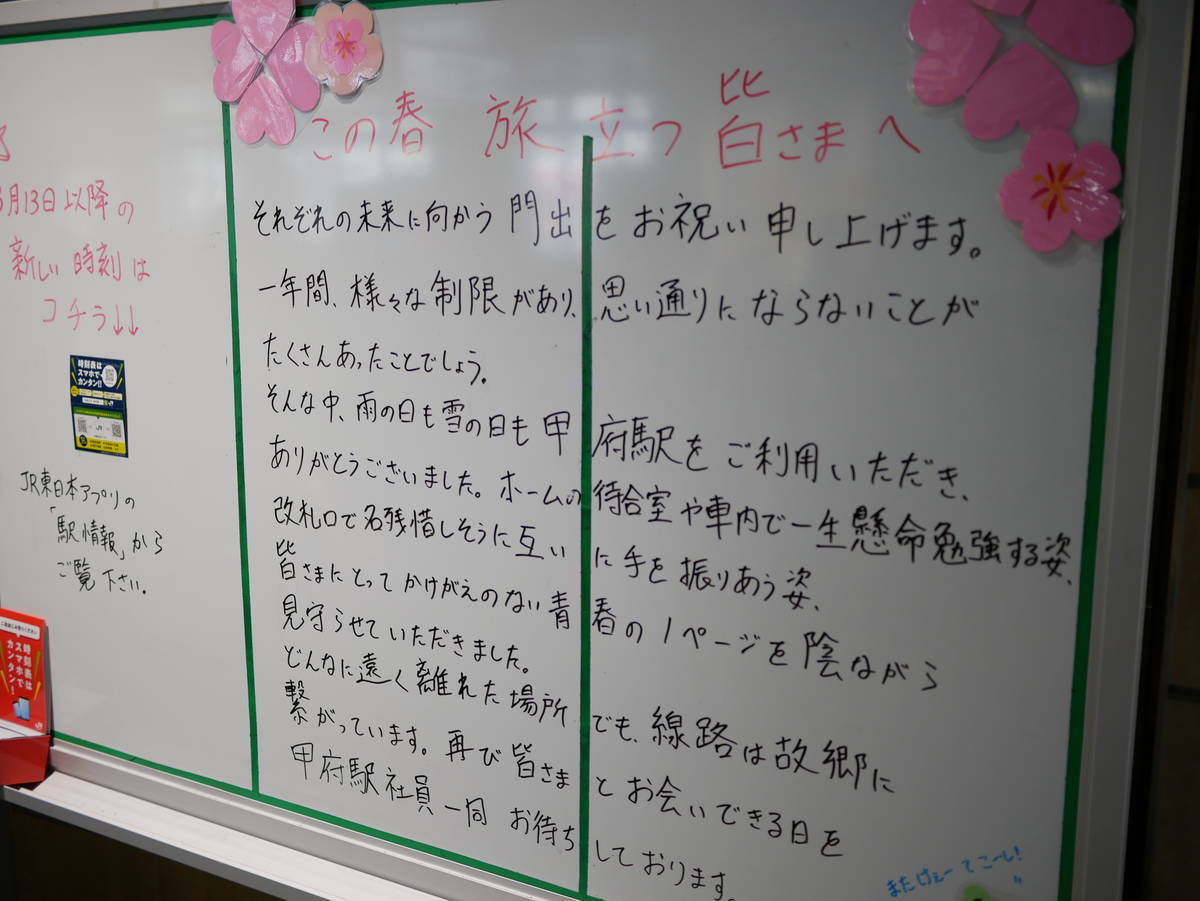 3月13日以降の
新しい時刻は
コチラ↓↓
時刻表は
スマホで
カンタン!!
JR東日本アプリの
「駅情報」から
ご覧下さい。
時刻表は
スマホで
カンタン!
この春 旅立つ 皆さまへ
それぞれの未来に向かう門出をお祝い申し上げます。
一年間、様々な制限があり、思い通りにならないことが
たくさんあったことでしょう。
そんな中、雨の日も雪の日も甲府駅をご利用いただき、
ありがとうございました。ホームの待合室や車内で一生懸命勉強する姿、
改札口で名残惜しそうに互いに手を振りあう姿、
皆さまにとってかけがえのない青春の1ページを陰ながら
見守らせていただきました。
どんなに遠く離れた場所でも、線路は故郷に
繋がっています。再び皆さまとお会いできる日を
甲府駅社員一同 お待ちしております。
またけぇーてこーし!